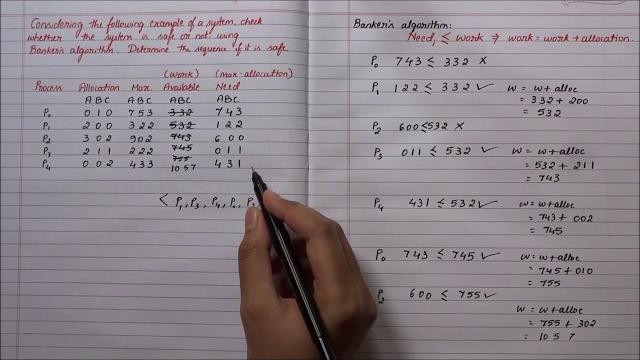 Considering the following example of a system, check
whether the system is safe or not using
Banker's algorithm. Determine the sequence if it is safe
(Work) (max-allocation)
Process Allocation Max. Available Need
A B C A B C A B C A B C
P₀ 0 1 0 7 5 3 3 3 2 7 4 3
P₁ 2 0 0 3 2 2 5 3 2 1 2 2
P₂ 3 0 2 9 0 2 7 4 3 6 0 0
P₃ 2 1 1 2 2 2 7 4 5 0 1 1
P₄ 0 0 2 4 3 3 7 5 5 4 3 1
10 5 7
< P₁, P₃, P₄, P₀, P₂
Banker's algorithm:
Need ≤ work ⇒ work = work + allocation.
P₀ 7 4 3 ≤ 3 3 2 ×
P₁ 1 2 2 ≤ 3 3 2 ✓ w = w + alloc
= 3 3 2 + 2 0 0
= 5 3 2
P₂ 6 0 0 ≤ 5 3 2 ×
P₃ 0 1 1 ≤ 5 3 2 ✓ w = w + alloc
= 5 3 2 + 2 1 1
= 7 4 3
P₄ 4 3 1 ≤ 5 3 2 ✓ w = w + alloc
= 7 4 3 + 0 0 2
= 7 4 5
P₀ 7 4 3 ≤ 7 4 5 ✓ w = w + alloc
= 7 4 5 + 0 1 0
= 7 5 5
P₂ 6 0 0 ≤ 7 5 5 ✓
w = w + alloc
= 7 5 5 + 3 0 2
= 10 5 7